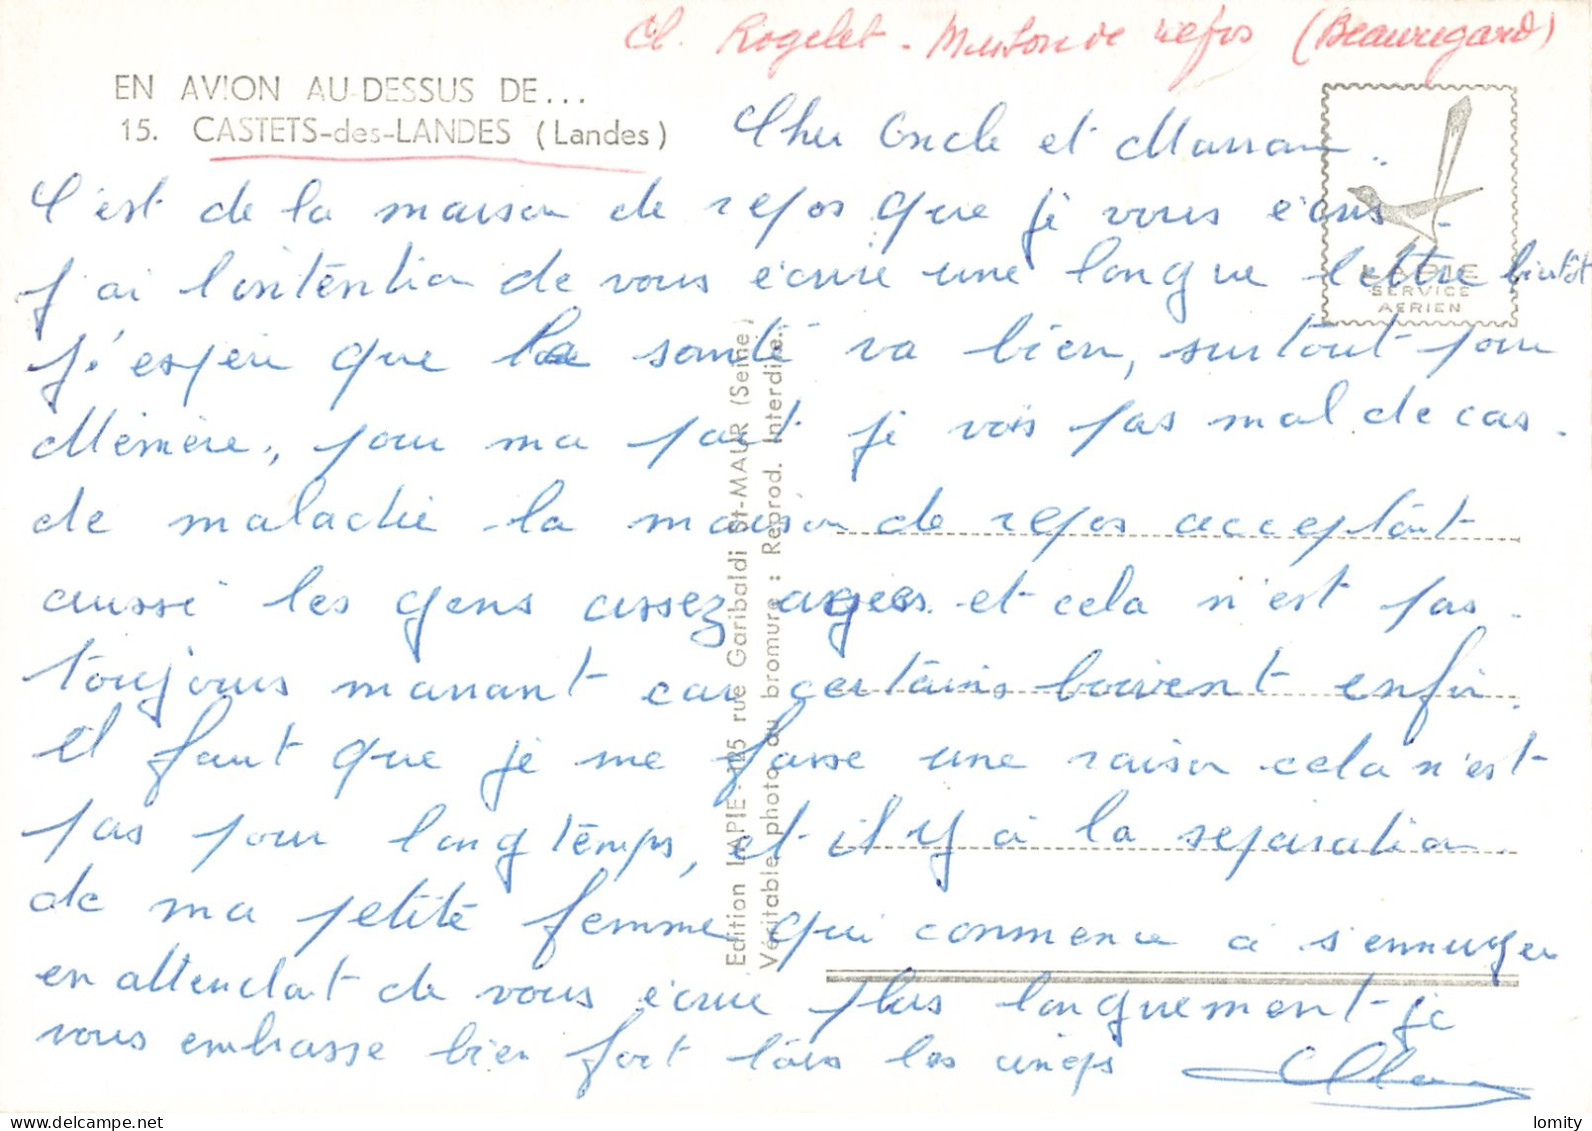 Cl. Rogelet - Maison de repos (Beauregard)
EN AVION AU-DESSUS DE...
15. CASTETS-des-LANDES (Landes)
Cher Oncle et Marraine.
C'est de la maison de repos que je vous écris.
J'ai l'intention de vous écrire une longue lettre bientôt
J'espère que la santé va bien, surtout pour
Mémère, pour ma part je vois pas mal de cas
de maladie la maison de repos acceptant
aussi les gens assez agées et cela n'est pas
toujours marrant car certains boivent enfin
il faut que je me fasse une raison cela n'est
pas pour longtemps, et il y a la separation
de ma petite femme qui commence a s'ennuyer
en attendant de vous écrire plus longuement je
vous embrasse bien fort tous les cinqs
LAPIE
SERVICE
AERIEN
Edition LAPIE - 125 rue Garibaldi St-MAUR (Seine)
Véritable photo au bromure : Reprod. Interdite.
lomity.com